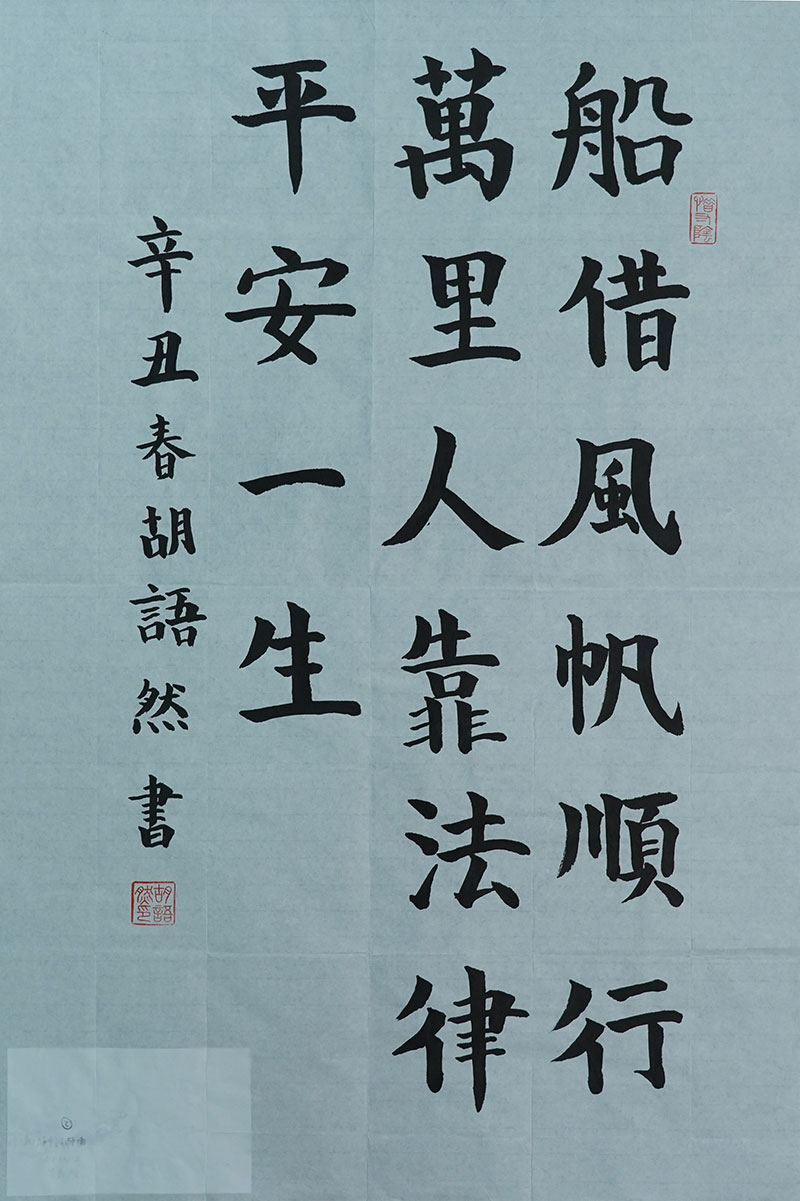 船借風帆順行
萬里人靠法律
平安一生
辛丑春胡語然書
惜寸陰
胡語然印